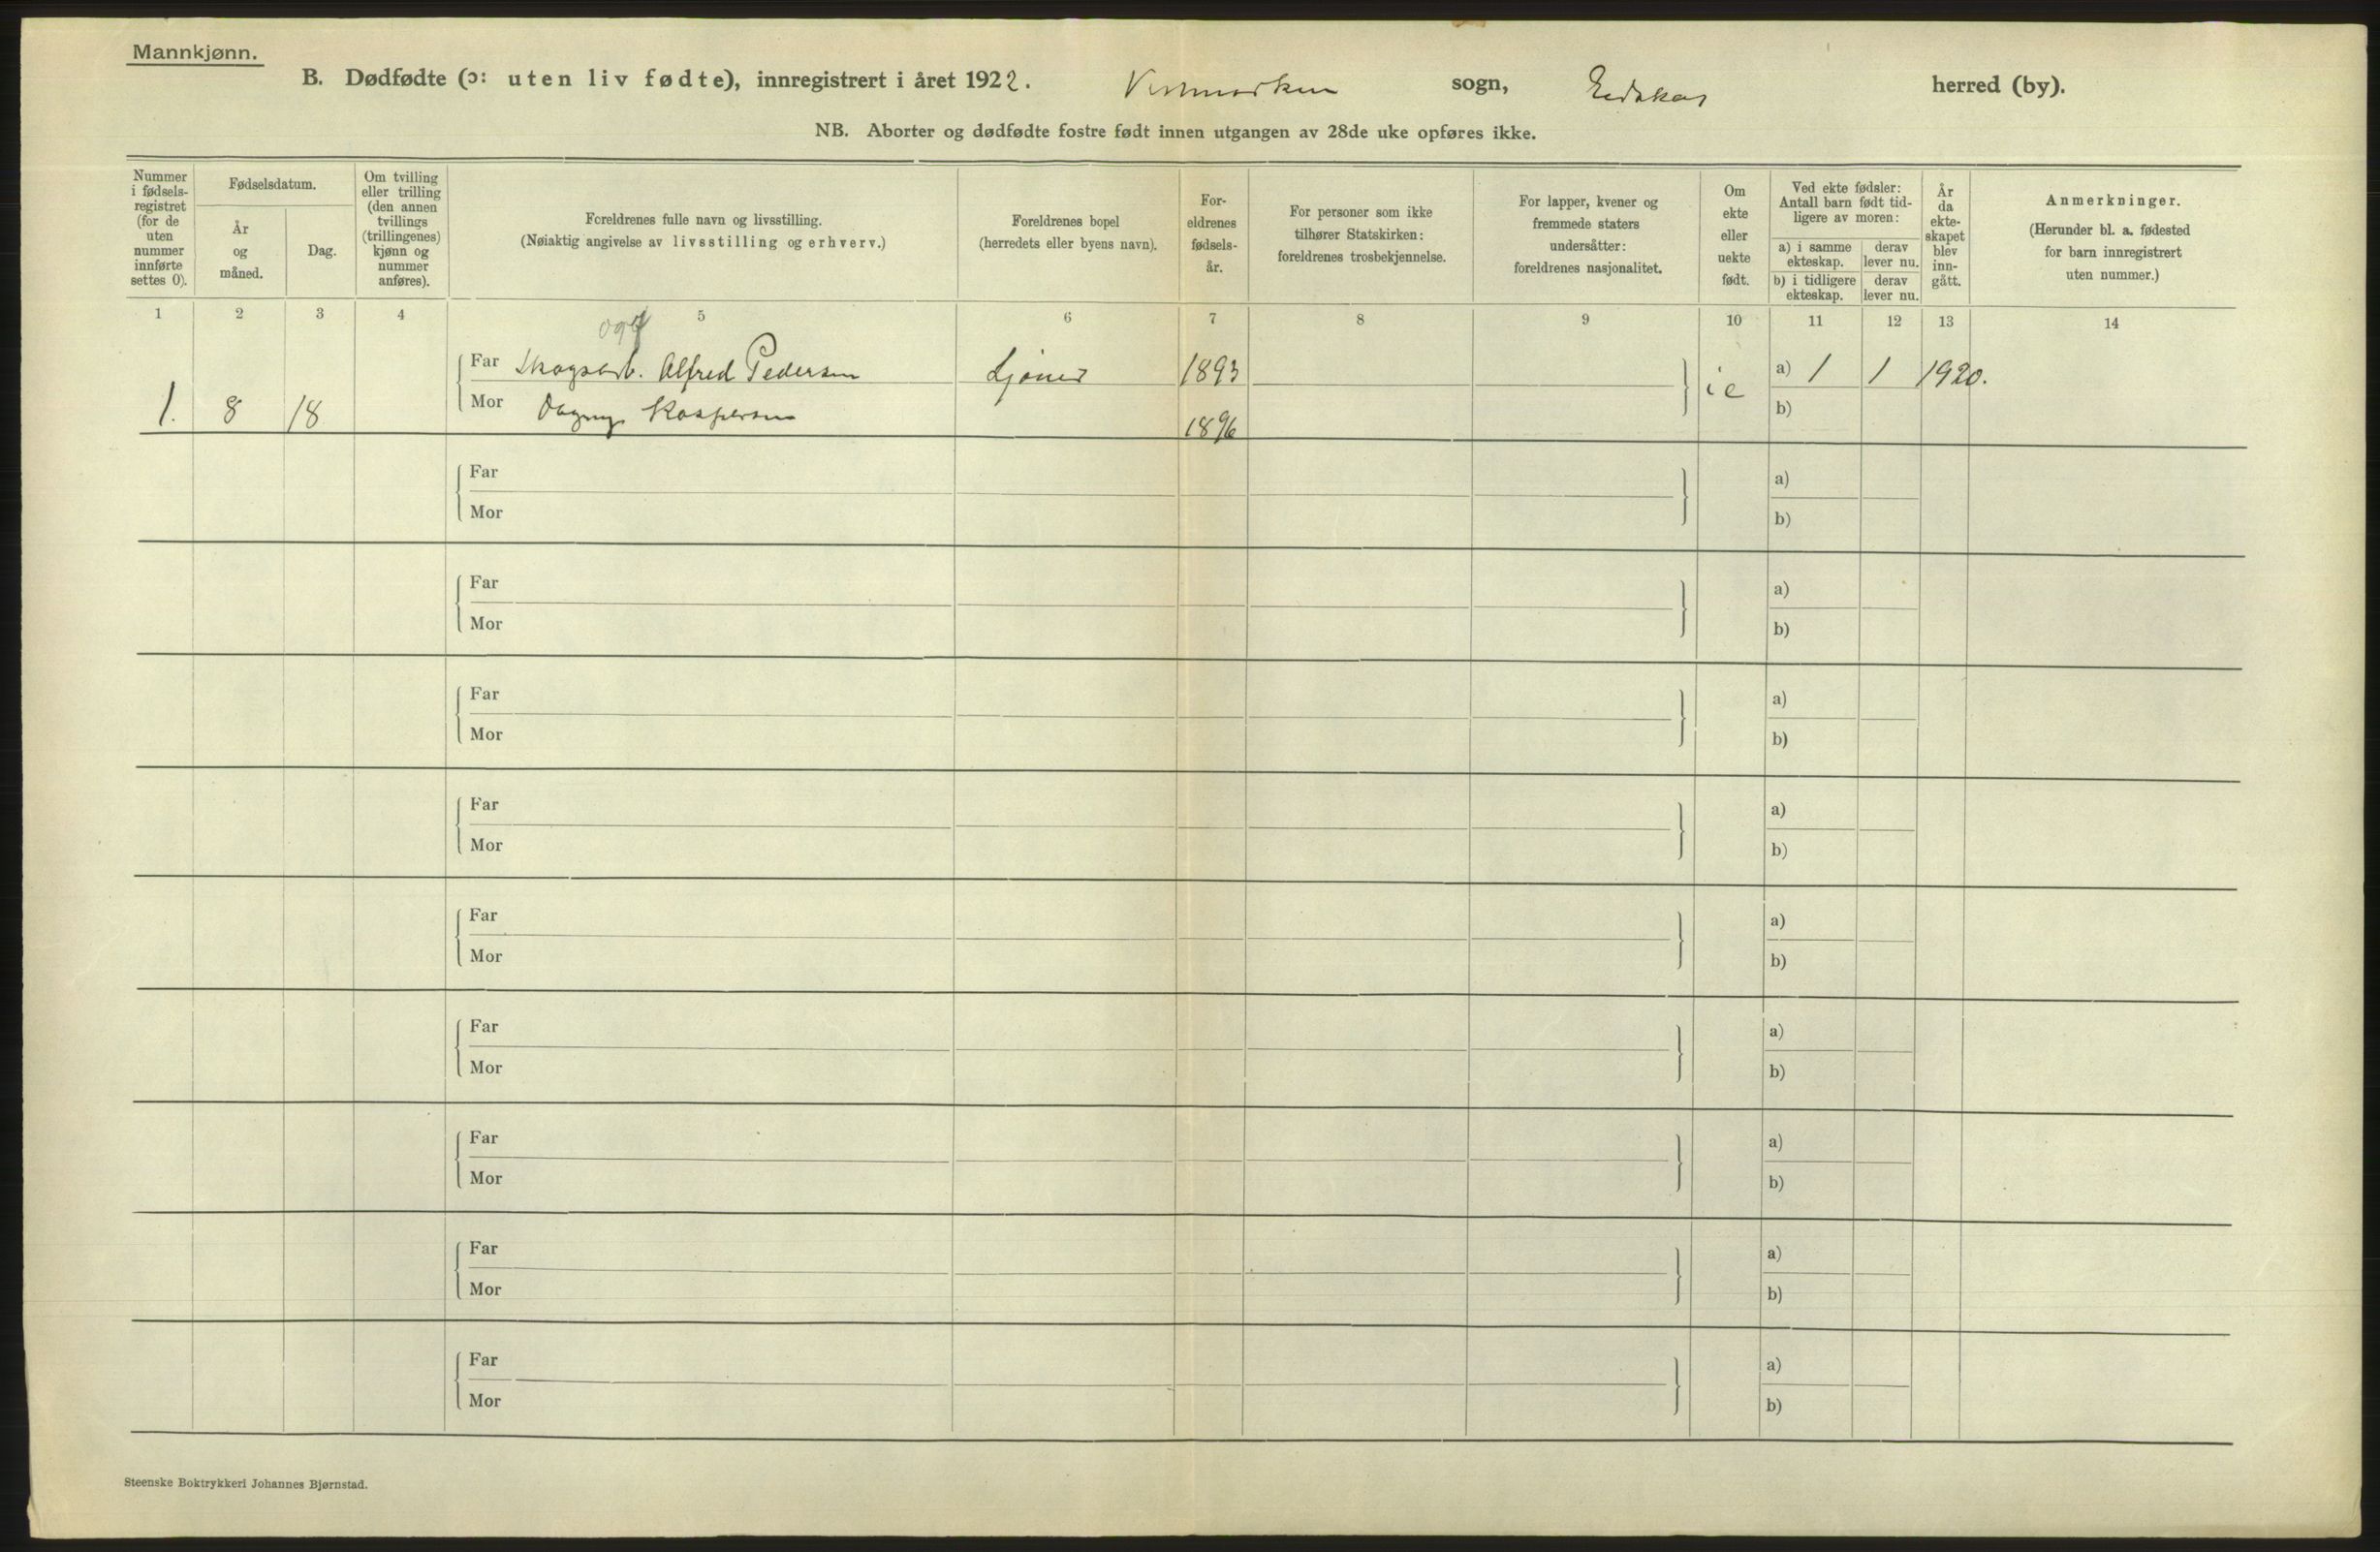 Mannkjønn.
B. Dødfødte (ɔ: uten liv fødte), innregistrert i året 1922. Vestmarken sogn, Eidskog herred (by).
NB. Aborter og dødfødte fostre født innen utgangen av 28de uke opføres ikke.
Nummer i fødsels-registret (for de uten nummer innførte settes 0).
Fødselsdatum.
År og måned.
Dag.
Om tvilling eller trilling (den annen tvillings (trillingenes) kjønn og nummer anføres).
Foreldrenes fulle navn og livsstilling.
(Nøiaktig angivelse av livsstilling og erhverv.)
Foreldrenes bopel
(herredets eller byens navn).
For-eldrenes fødsels-år.
For personer som ikke tilhører Statskirken: foreldrenes trosbekjennelse.
For lapper, kvener og fremmede staters undersåtter: foreldrenes nasjonalitet.
Om ekte eller uekte født.
Ved ekte fødsler: Antall barn født tid-ligere av moren:
a) i samme ekteskap.
derav lever nu.
b) i tidligere ekteskap.
derav lever nu.
År da ekte-skapet blev inn-gått.
Anmerkninger.
(Herunder bl. a. fødested for barn innregistrert uten nummer.)
1 2 3 4 5 6 7 8 9 10 11 12 13 14
Far Skogsarb. Alfred Pedersen 1893 a) 1 1 1920.
1. 8 18 Mor Dagny Kaspersen 1896 b)
Far a)
Mor b)
Far a)
Mor b)
Far a)
Mor b)
Far a)
Mor b)
Far a)
Mor b)
Far a)
Mor b)
Far a)
Mor b)
Far a)
Mor b)
Far a)
Mor b)
Steenske Boktrykkeri Johannes Bjørnstad.